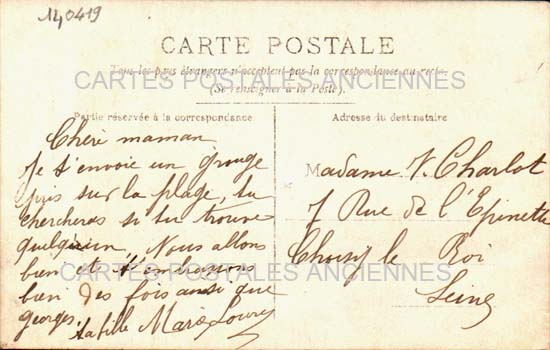 140419
CARTE POSTALE
Tous les pays étrangers n'acceptent pas la correspondance au recto.
(Se renseigner à la Poste).
CARTES POSTALES ANCIENNES
Partie réservée à la correspondance
Adresse du destinataire
Chère maman
Je t'envoie un groupe
pris sur la plage, tu
chercheras si tu trouves
quelqu'un. Nous allons
bien et t'embrassons
bien des fois ainsi que
georges. ta fille
Madame V. Charlot
7 Rue de l'Epinette
Choisy le Roi
Seine
CARTES POSTALES ANCIENNES